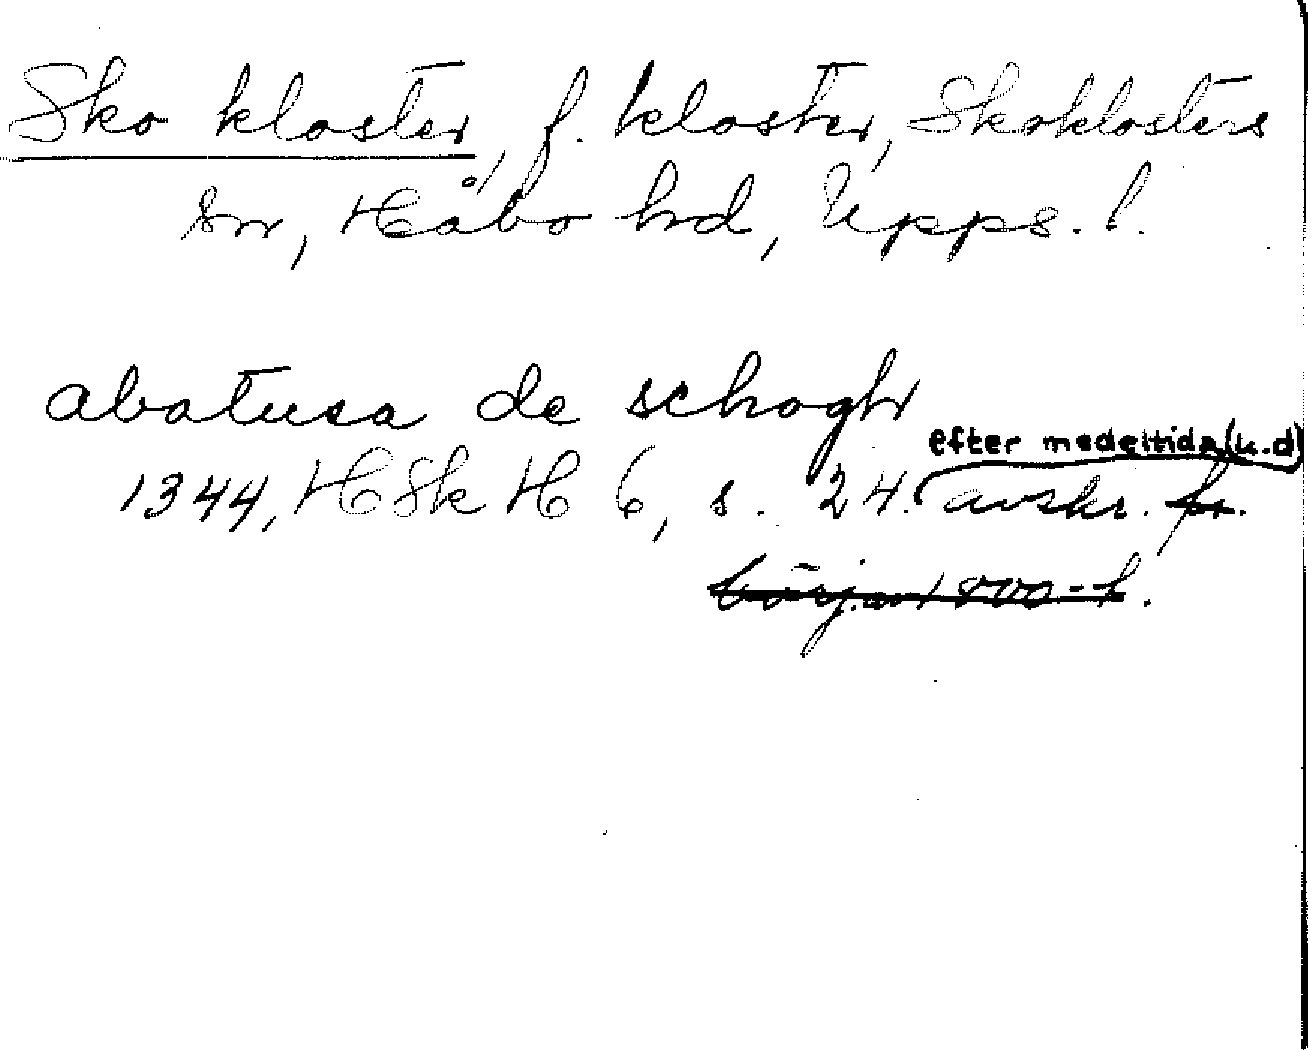 Sko kloster, f. kloster, Skoklosters
sn, Håbo hd, Upps. l.
abatusa de schogh
efter medeltida (u.d)
1344, HSkH 6, s. 24. avskr. fr.
början 1800-t.